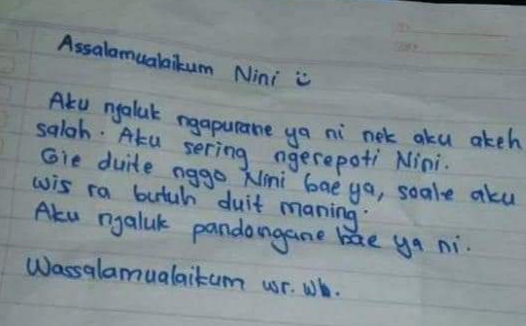 Assalamualaikum Nini ü
Aku njaluk ngapurane ya ni nek aku akeh
salah. Aku sering ngerepoti Nini.
Gie duite nggo Nini bae ya, soale aku
wis ra butuh duit maning.
Aku njaluk pandongane bae ya ni.
Wassalamualaikum wr. wb.